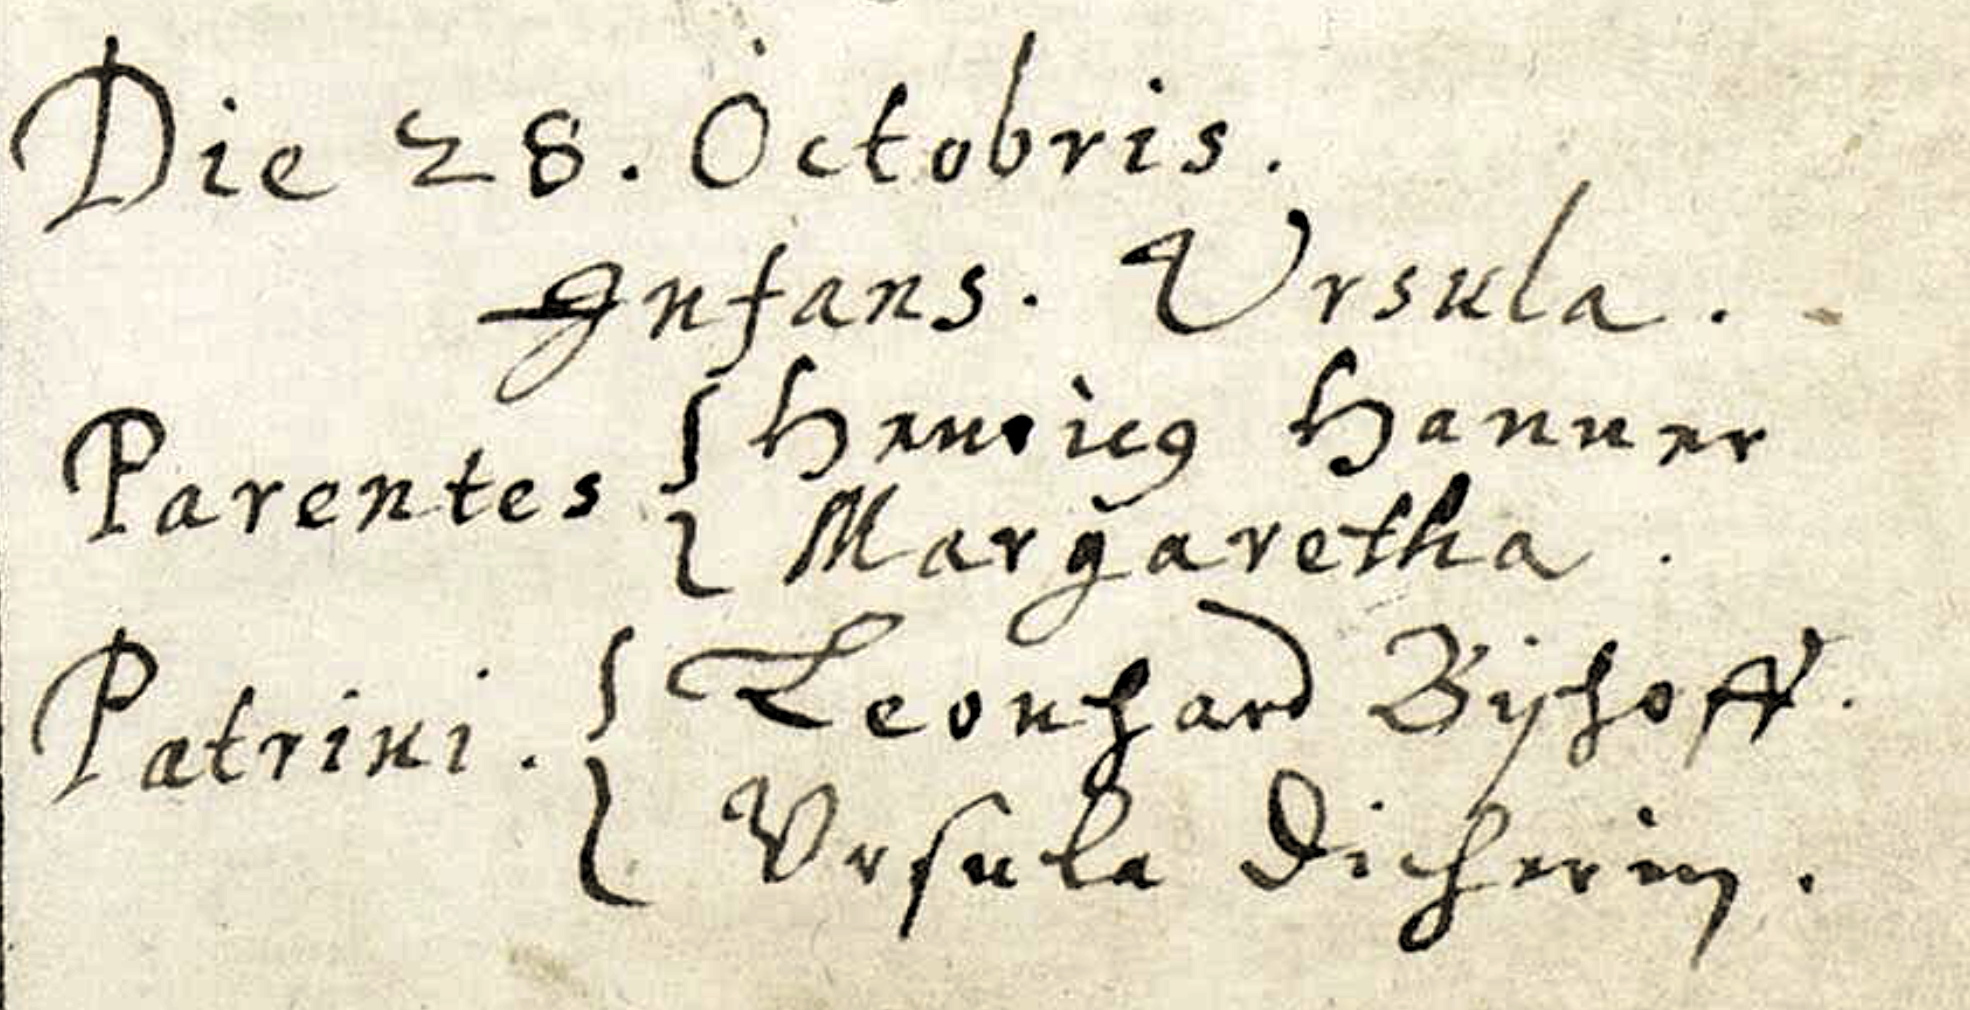 Die 28. Octobris.
Infans. Ursula.
Parentes { Henricus Hanner
Margaretha.
Patrini. { Leonhard Bischoff.
Vrsula Dicherin.